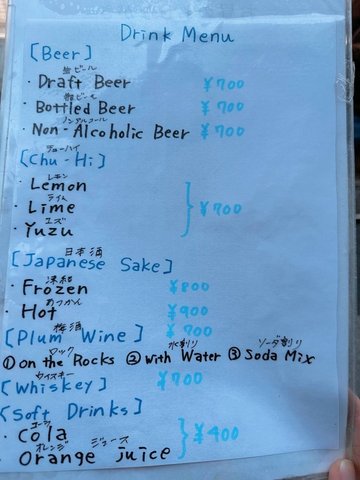 Drink Menu
[Beer]
生ビール
・Draft Beer ¥700
瓶ビール
・Bottled Beer ¥700
ノンアルコール
・Non-Alcoholic Beer ¥700
チューハイ
[Chu-Hi]
レモン
・Lemon
ライム
・Lime ¥700
ユズ
・Yuzu
日本酒
[Japanese Sake]
凍結
・Frozen ¥800
あつかん
・Hot ¥900
梅酒
[Plum Wine] ¥700
ロック 水割り ソーダ割り
①on the Rocks ②with Water ③Soda Mix
ウイスキー
[Whiskey] ¥700
[Soft Drinks]
コーラ
・Cola ¥400
オレンジ ジュース
・Orange juice